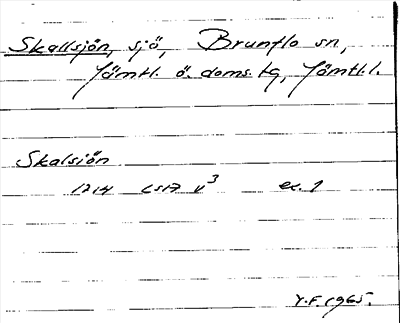 Skallsjön, sjö, Brunflo sn,
Jämtl. ö. doms. tg, Jämtl.l.
Skalsiön
1714 LS17 v³ ex. 1
Y.F. 1965.